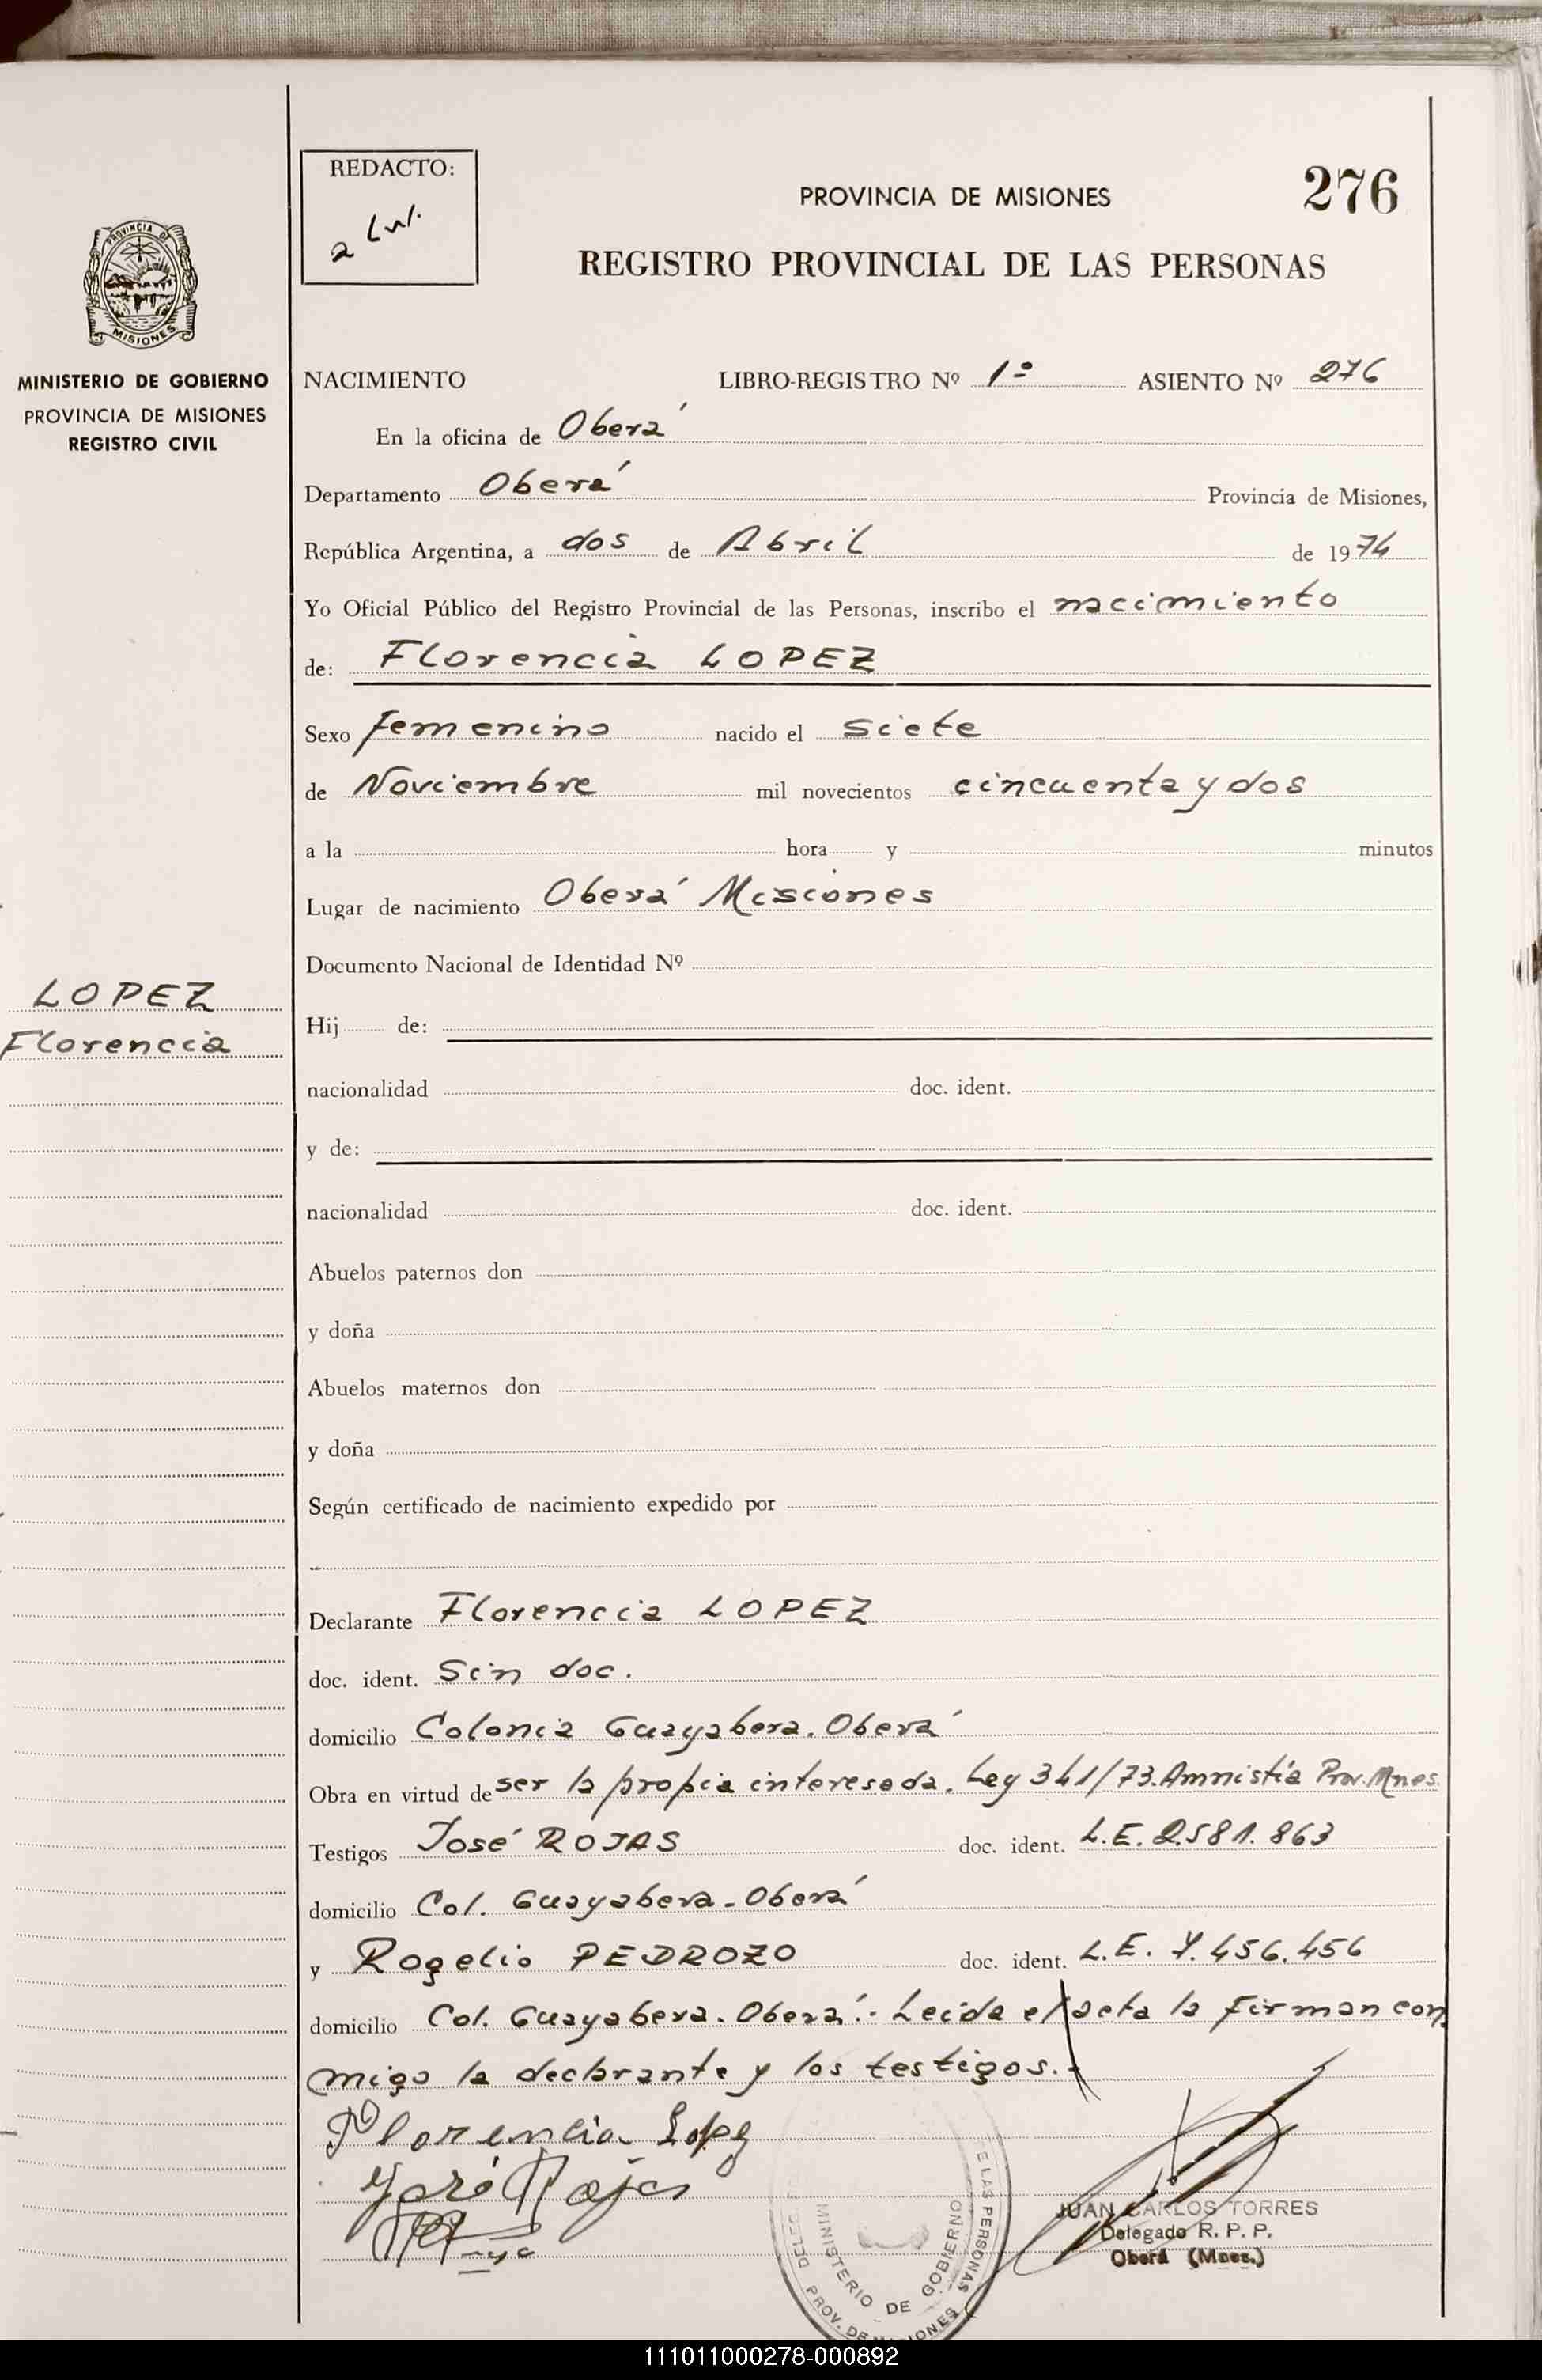 REDACTO:
PROVINCIA DE MISIONES
276
REGISTRO PROVINCIAL DE LAS PERSONAS
PROVINCIA DE
MISIONES
MINISTERIO DE GOBIERNO
PROVINCIA DE MISIONES
REGISTRO CIVIL
NACIMIENTO LIBRO-REGISTRO Nº 1º ASIENTO Nº 276
En la oficina de Oberá
Departamento Oberá Provincia de Misiones,
República Argentina, a dos de Abril de 1974
Yo Oficial Público del Registro Provincial de las Personas, inscribo el nacimiento
de: Florencia LOPEZ
Sexo femenino nacido el siete
de Noviembre mil novecientos cincuenta y dos
a la hora y minutos
Lugar de nacimiento Oberá Misiones
Documento Nacional de Identidad Nº
LOPEZ
Florencia
Hij de:
nacionalidad doc. ident.
y de:
nacionalidad doc. ident.
Abuelos paternos don
y doña
Abuelos maternos don
y doña
Según certificado de nacimiento expedido por
Declarante Florencia LOPEZ
doc. ident. Sin doc.
domicilio Colonia Guayabera. Oberá
Obra en virtud de ser la propia interesada. Ley 341/73. Amnistía Prov. Mnes.
Testigos José ROJAS doc. ident. L.E. 2.581.863
domicilio Col. Guayabera - Oberá
y Rogelio PEDROZO doc. ident. L.E. 7.456.456
domicilio Col. Guayabera. Oberá.- Leida el acta la firman con
migo la declarante y los testigos.-
Florencia Lopez
José Rojas
JUAN CARLOS TORRES
Delegado R. P. P.
Oberá (Mnes.)
MINISTERIO DE GOBIERNO
E LAS PERSONAS
PROV. DE MISIONES
111011000278-000892